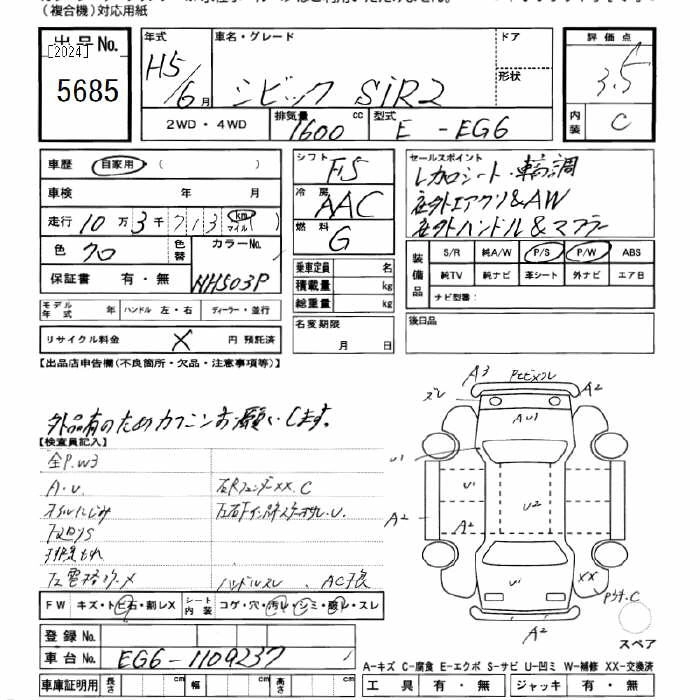 (複合機)対応用紙
出品No.
[2024]
5685
年式 H5/6月
車名・グレード シビック SiR2
ドア
形状
2WD・4WD
排気量 1600 cc
型式 E-EG6
評価点 3.5
内装 C
車歴 自家用 ( )
車検 年 月
走行 10万3千713 (km マイル)
色 クロ
色替
カラーNo. NH503P
保証書 有・無
モデル年式 年 ハンドル 左・右 ディーラー・並行
リサイクル料金 X 円 預託済
シフト F5
冷房 AAC
燃料 G
乗車定員 名
積載量 kg
総重量 kg
名変期限
月 日
セールスポイント
レカロシート・車高調
社外エアクリ&AW
社外ハンドル&マフラー
装備品
S/R 純A/W P/S P/W ABS
純TV 純ナビ 革シート 外ナビ エアB
ナビ型番:
後日品
【出品店申告欄(不良箇所・欠品・注意事項等)】
外品有のためカクニンお願いします。
【検査員記入】
全P.W3
A・U
オイルにじみ
下廻りS
ハンドルスレ
AC不良
FW キズ・トビ石・割レX
シート内装 コゲ・穴・汚レ・シミ・破レ・スレ
登録No.
車台No. EG6-1109237
車庫証明用 長さ cm 幅 cm 高さ cm
A3
ズレ
A2
AU1
U1
U1
U2
A2
A2
U1
XX
C
A2
スペア
A-キズ C-腐食 E-エクボ S-サビ U-凹ミ W-補修 XX-交換済
工具 有・無 ジャッキ 有・無